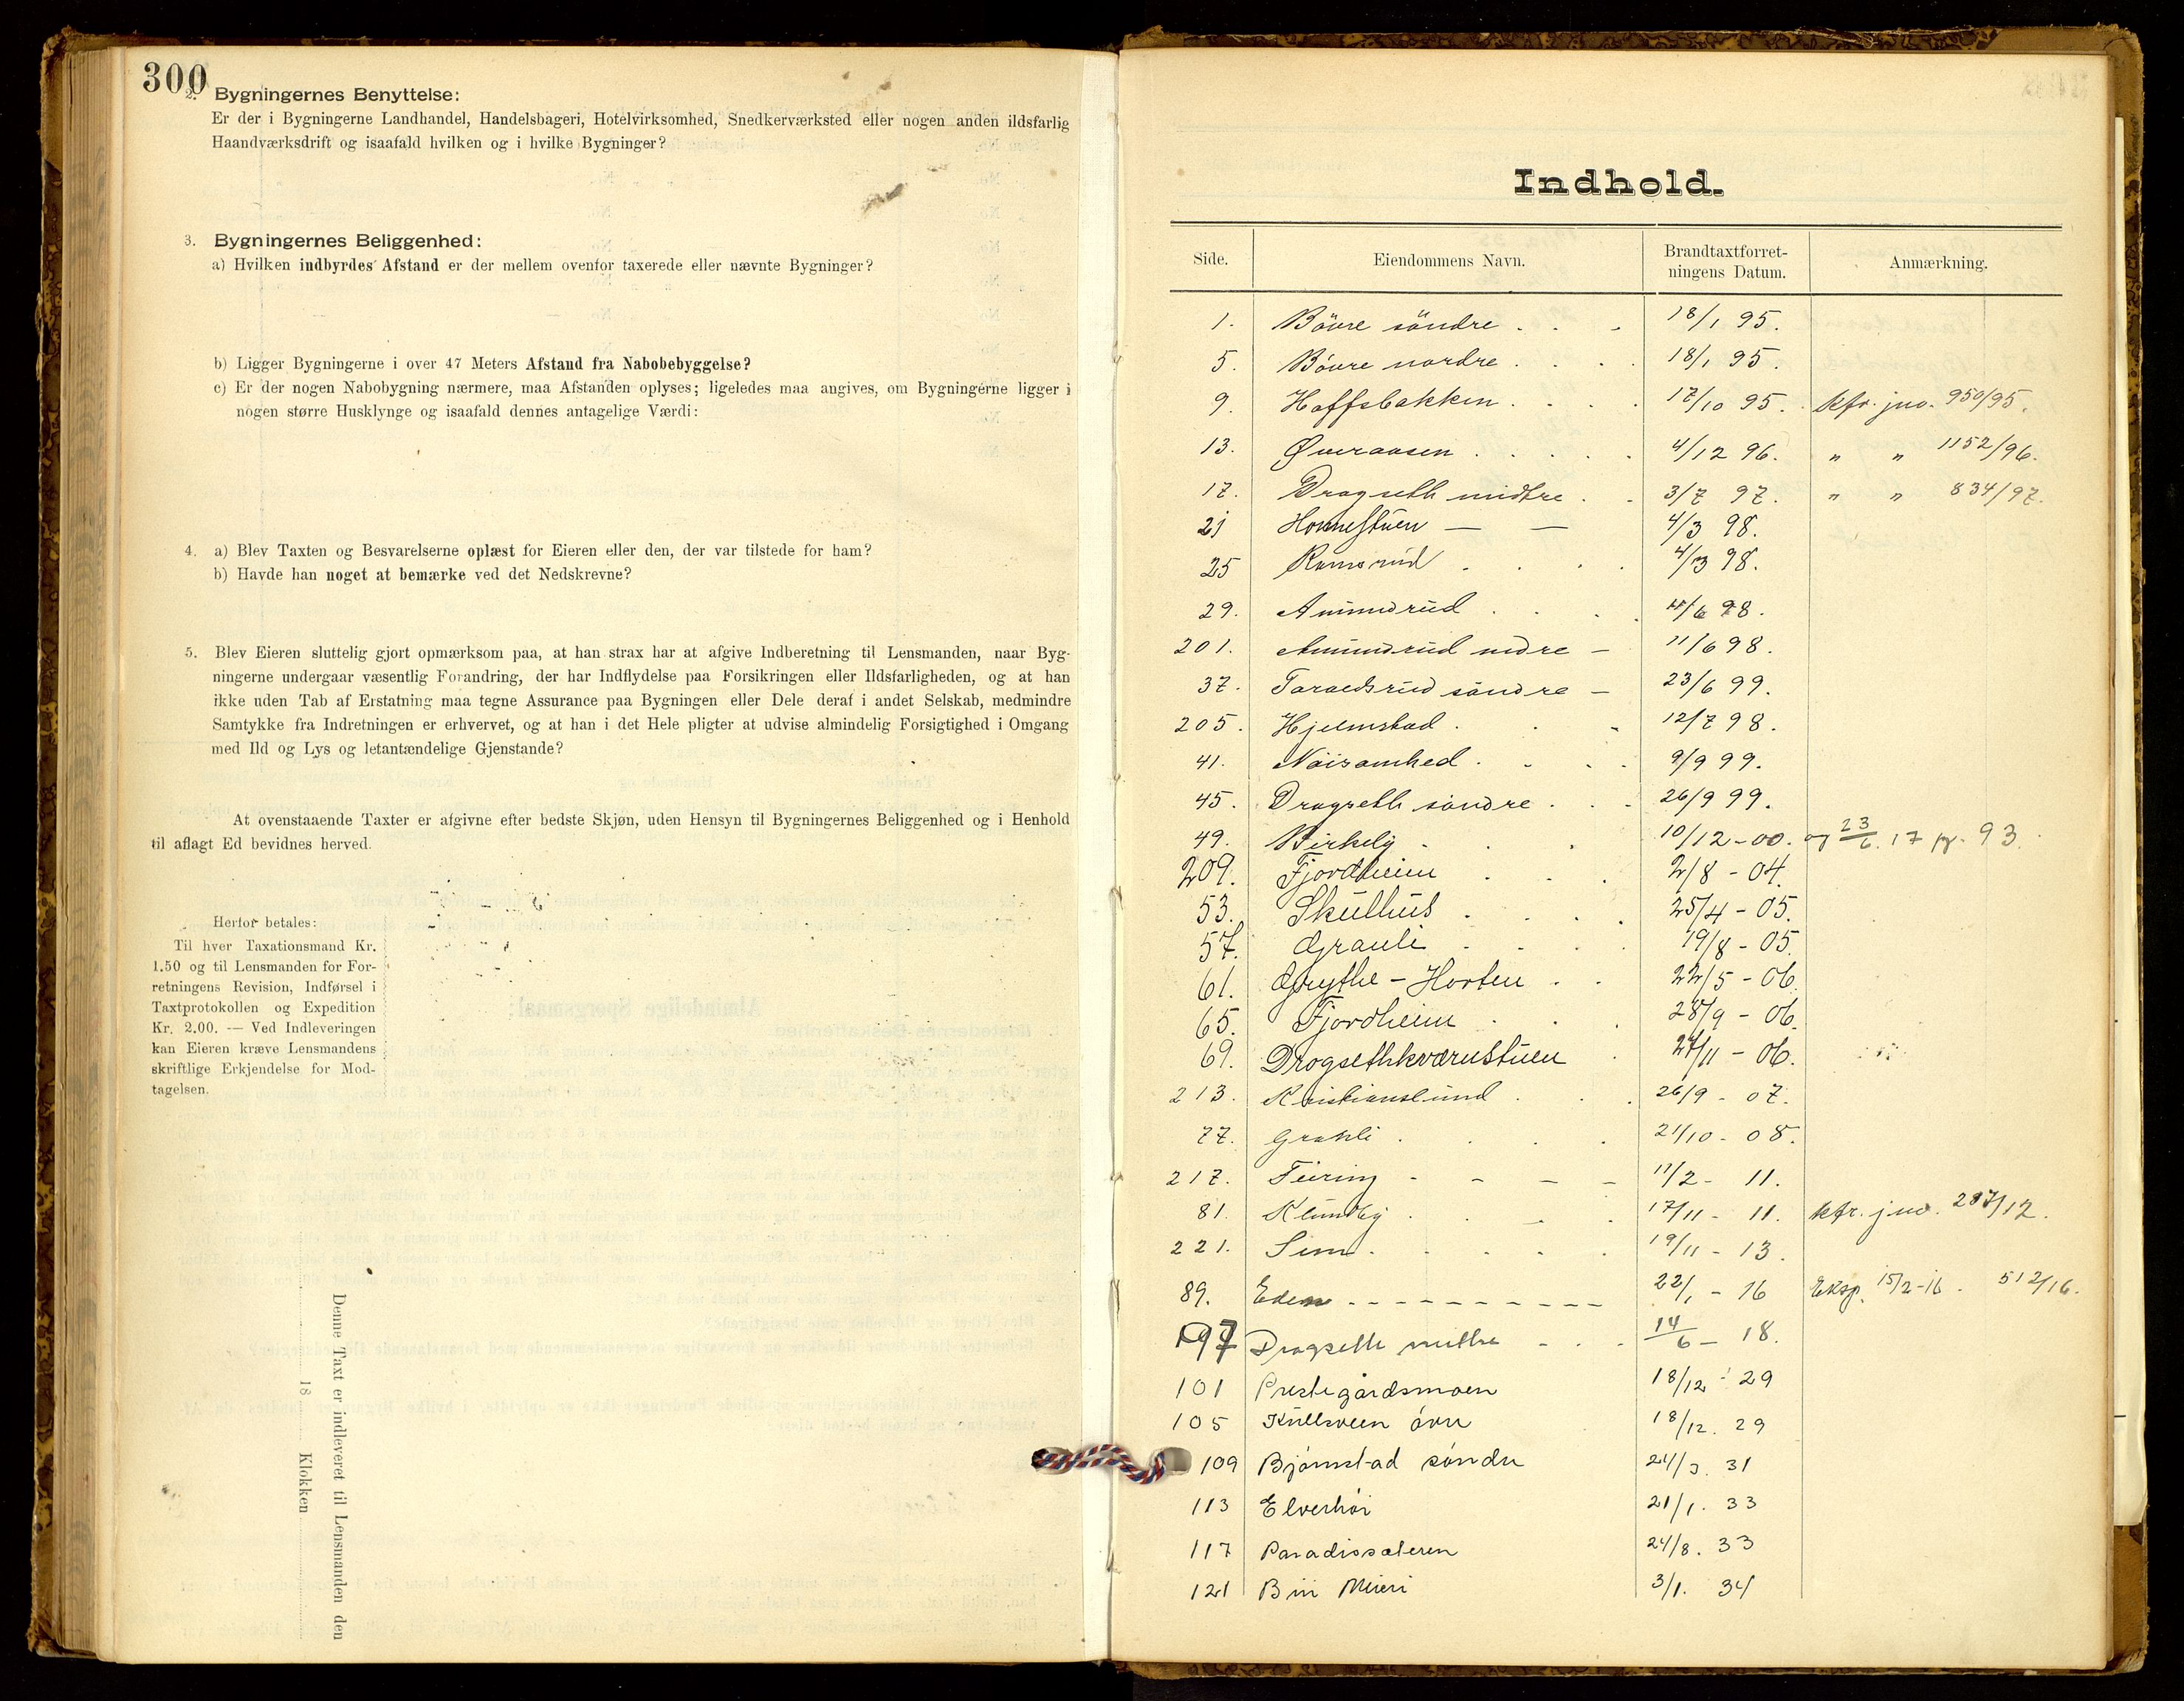 300
2. Bygningernes Benyttelse:
Er der i Bygningerne Landhandel, Handelsbageri, Hotelvirksomhed, Snedkerværksted eller nogen anden ildsfarlig
Haandværksdrift og isaafald hvilken og i hvilke Bygninger?
3. Bygningernes Beliggenhed:
a) Hvilken indbyrdes Afstand er der mellem ovenfor taxerede eller nævnte Bygninger?
b) Ligger Bygningerne i over 47 Meters Afstand fra Nabobebyggelse?
c) Er der nogen Nabobygning nærmere, maa Afstanden oplyses; ligeledes maa angives, om Bygningerne ligger i
nogen større Husklynge og isaafald dennes antagelige Værdi:
4. a) Blev Taxten og Besvarelserne oplæst for Eieren eller den, der var tilstede for ham?
b) Havde han noget at bemærke ved det Nedskrevne?
5. Blev Eieren sluttelig gjort opmærksom paa, at han strax har at afgive Indberetning til Lensmanden, naar Byg-
ningerne undergaar væsentlig Forandring, der har Indflydelse paa Forsikringen eller Ildsfarligheden, og at han
ikke uden Tab af Erstatning maa tegne Assurance paa Bygningen eller Dele deraf i andet Selskab, medmindre
Samtykke fra Indretningen er erhvervet, og at han i det Hele pligter at udvise almindelig Forsigtighed i Omgang
med Ild og Lys og letantændelige Gjenstande?
At ovenstaaende Taxter er afgivne efter bedste Skjøn, uden Hensyn til Bygningernes Beliggenhed og i Henhold
til aflagt Ed bevidnes herved.
Herfor betales:
Til hver Taxationsmand Kr.
1.50 og til Lensmanden for For-
retningens Revision, Indførsel i
Taxtprotokollen og Expedition
Kr. 2.00. — Ved Indleveringen
kan Eieren kræve Lensmandens
skriftlige Erkjendelse for Mod-
tagelsen.
Denne Taxt er indleveret til Lensmanden den
18 Klokken
Indhold.
Side. Eiendommens Navn. Brandtaxtforret-
ningens Datum. Anmærkning.
1. Bövre söndre . . . 18/1 95.
5. Bövre nordre . . . . 18/1 95.
9. Hoffsbakken . . . . 17/10 95. Kfr. jno. 950/95.
13. Øveraasen . . . . . 4/12 96. " " 1152/96.
17. Dragseth midtre . . 3/7 97. " " 834/97.
21 Honnestuen — — 4/3 98.
25 Ramsrud . . . . 4/3 98.
29. Amundrud . . . . 4/6 98.
201. Amundrud nedre — 11/6 98.
37. söndre — 23/6 99.
205. Hjelmstad . . - 12/7 98.
41. Nöisomhed . . . . 9/9 99.
45. Dragseth söndre . . . 26/9 99.
49. Birkely . . . 10/12 - 00. og 23/6. 17 pg. 93.
209. Fjordheim . . . 2/8 - 04.
53. Skulhus . . . . 25/4 - 05.
57. Grauli . . . . 19/8 - 05.
61. Grythe - Horten . . 22/5 - 06.
65. Fjordheim . . . 28/9 - 06.
69. Drogsethkværnstuen . 27/11 - 06.
213. Kristianslund . . . 26/9 - 07.
77. Grahli . . . . 21/10 - 08.
217. Feiring - - - - 11/2 - 11.
81. Klundby . . . . 17/11 - 11. Kfr. jno. 287/12.
221. Sem . . . . . 19/11 - 13.
89. Eden - - - - - - - - - - 22/1 - 16 Eksp. 15/2-16. 512/16.
97 Dragseth mittre - . . 14/6 - 18.
101 Prestegårdsmoen 18/12 - 29
105 Kullsveen övre 18/12. 29
109 Bjørnstad søndre 24/3. 31
113 Elverhöi 21/1. 33
117 Paradissæteren 24/8. 33
121 Biri Meieri 3/1. 34